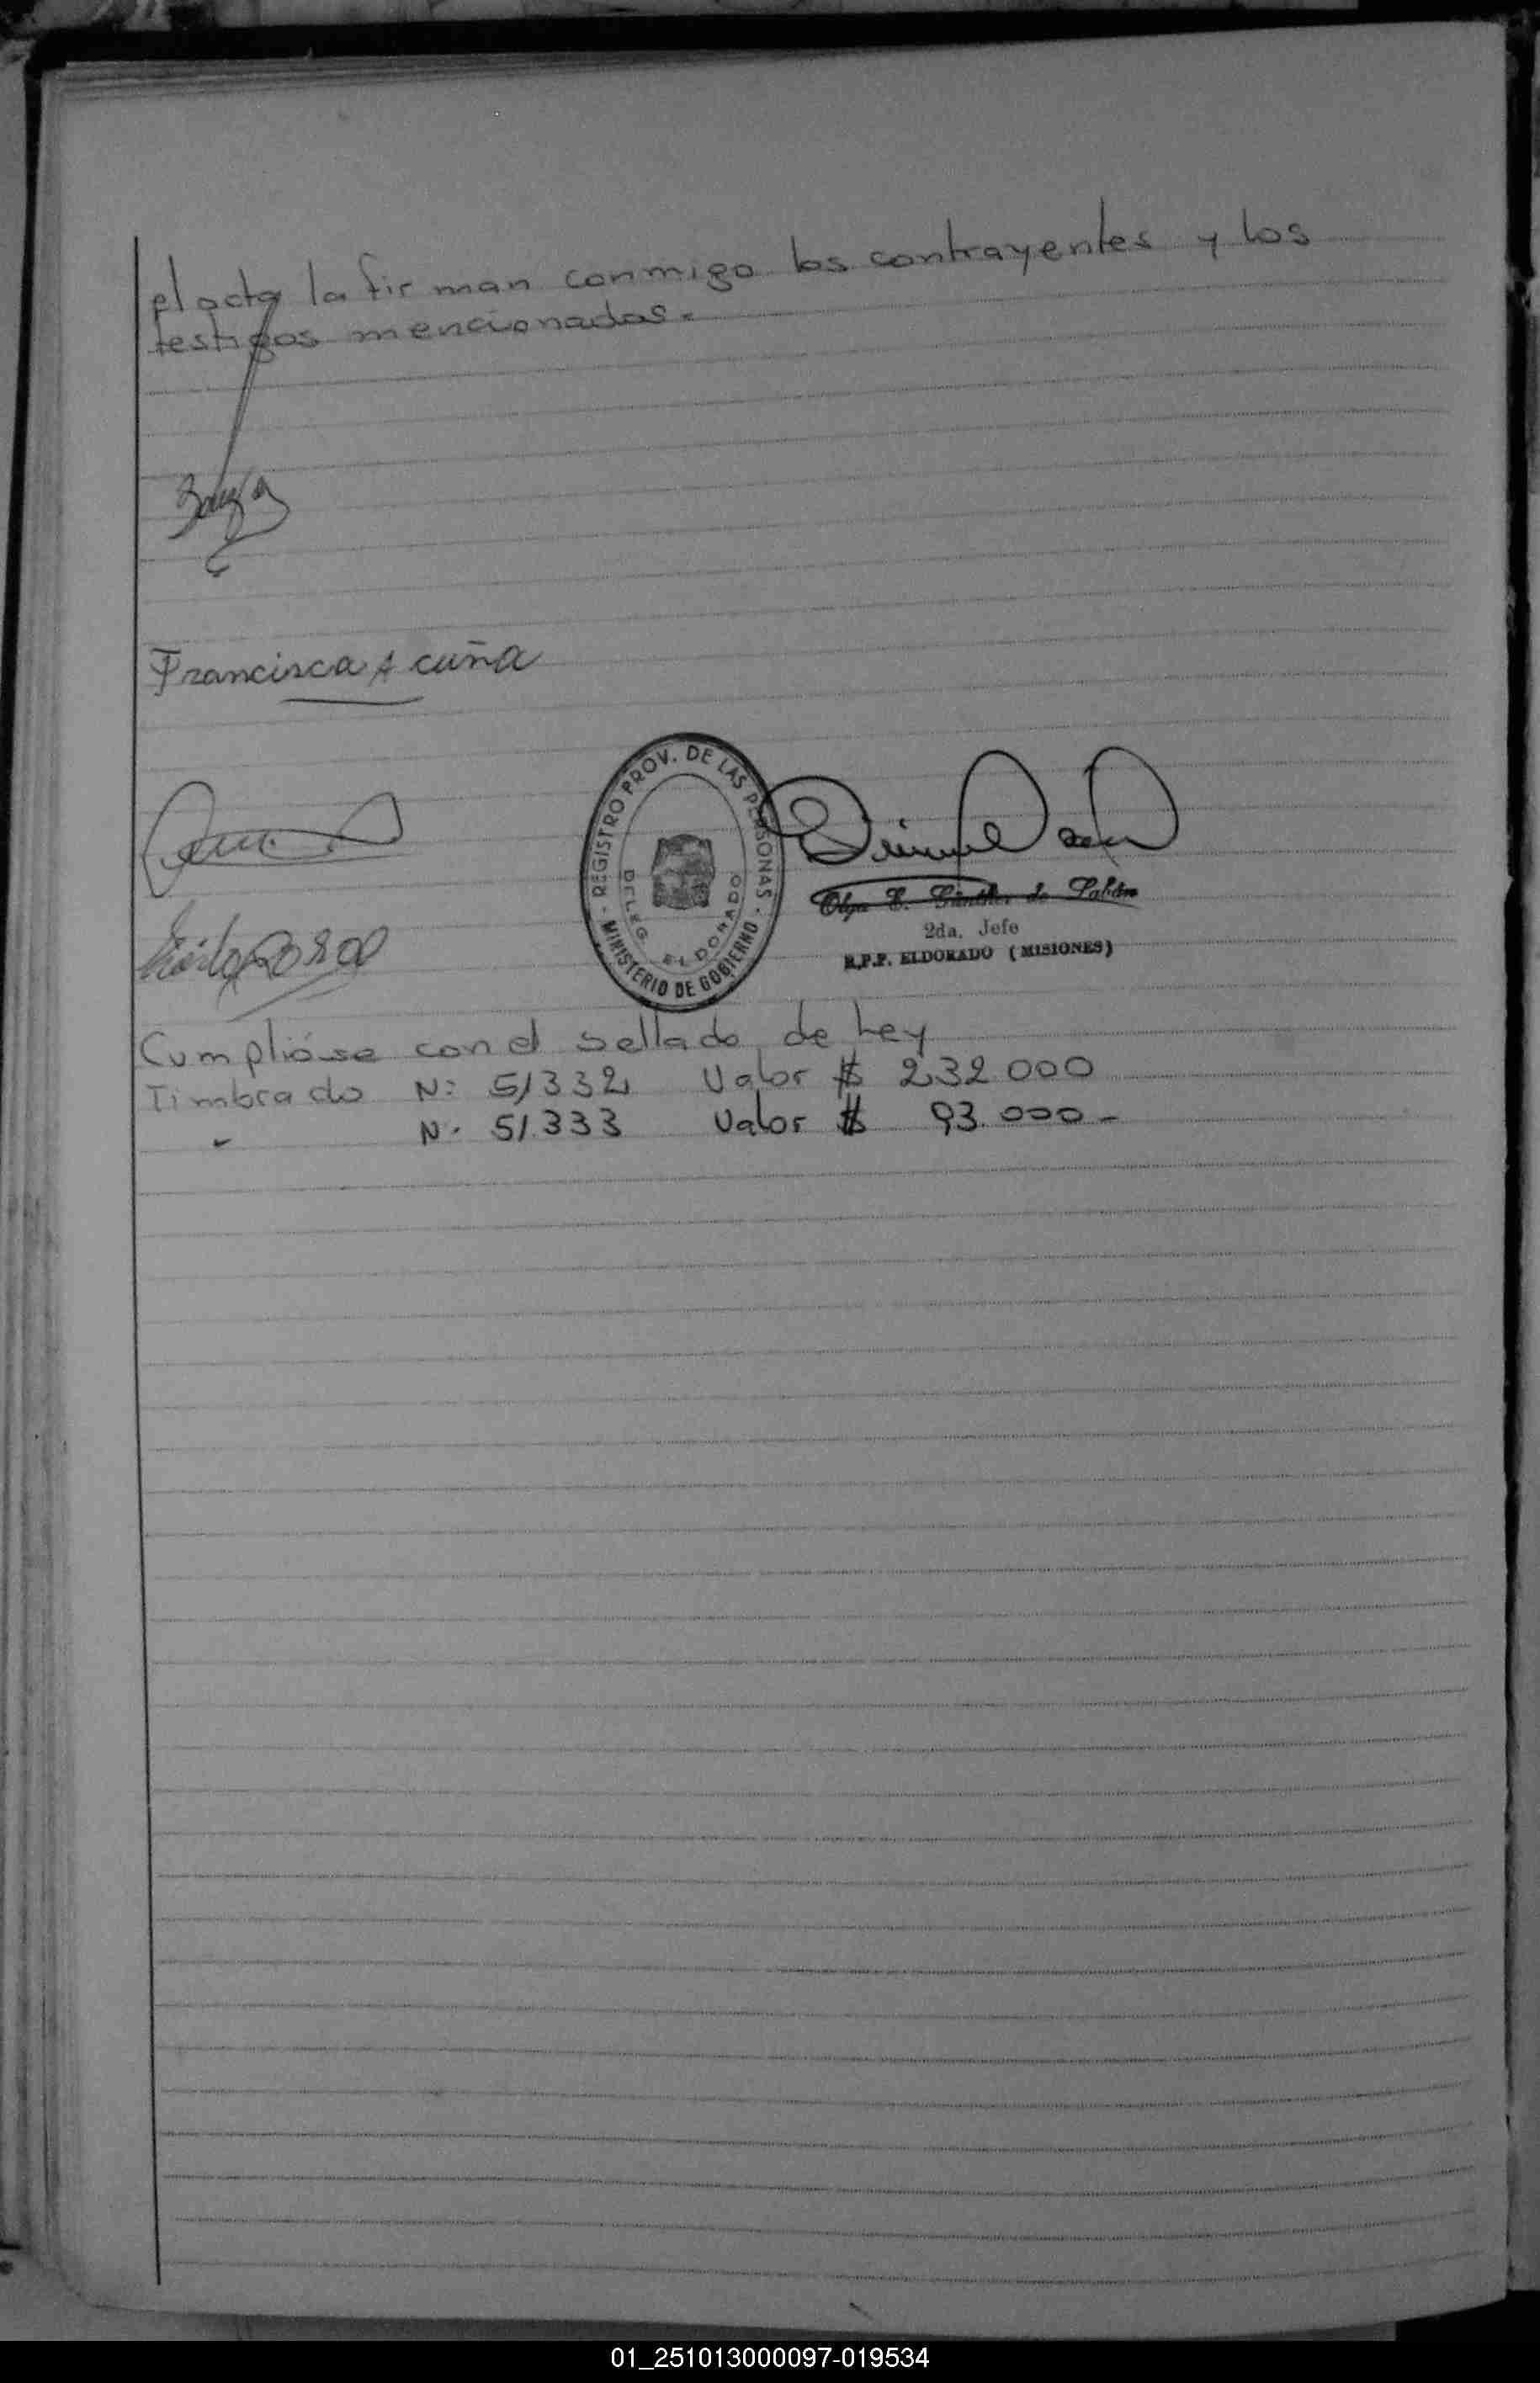 el acta la firman conmigo los contrayentes y los
testigos mencionados.
Francisca Acuña
- REGISTRO PROV. DE LAS PERSONAS -
MINISTERIO DE GOBIERNO
DELEG. ELDORADO
Olga E. Günther de
2da. Jefe
R.P.P. ELDORADO (MISIONES)
Cumplióse con el sellado de Ley
Timbrado N: 51332 Valor $ 232.000
" N. 51.333 Valor $ 93.000-
01_251013000097-019534